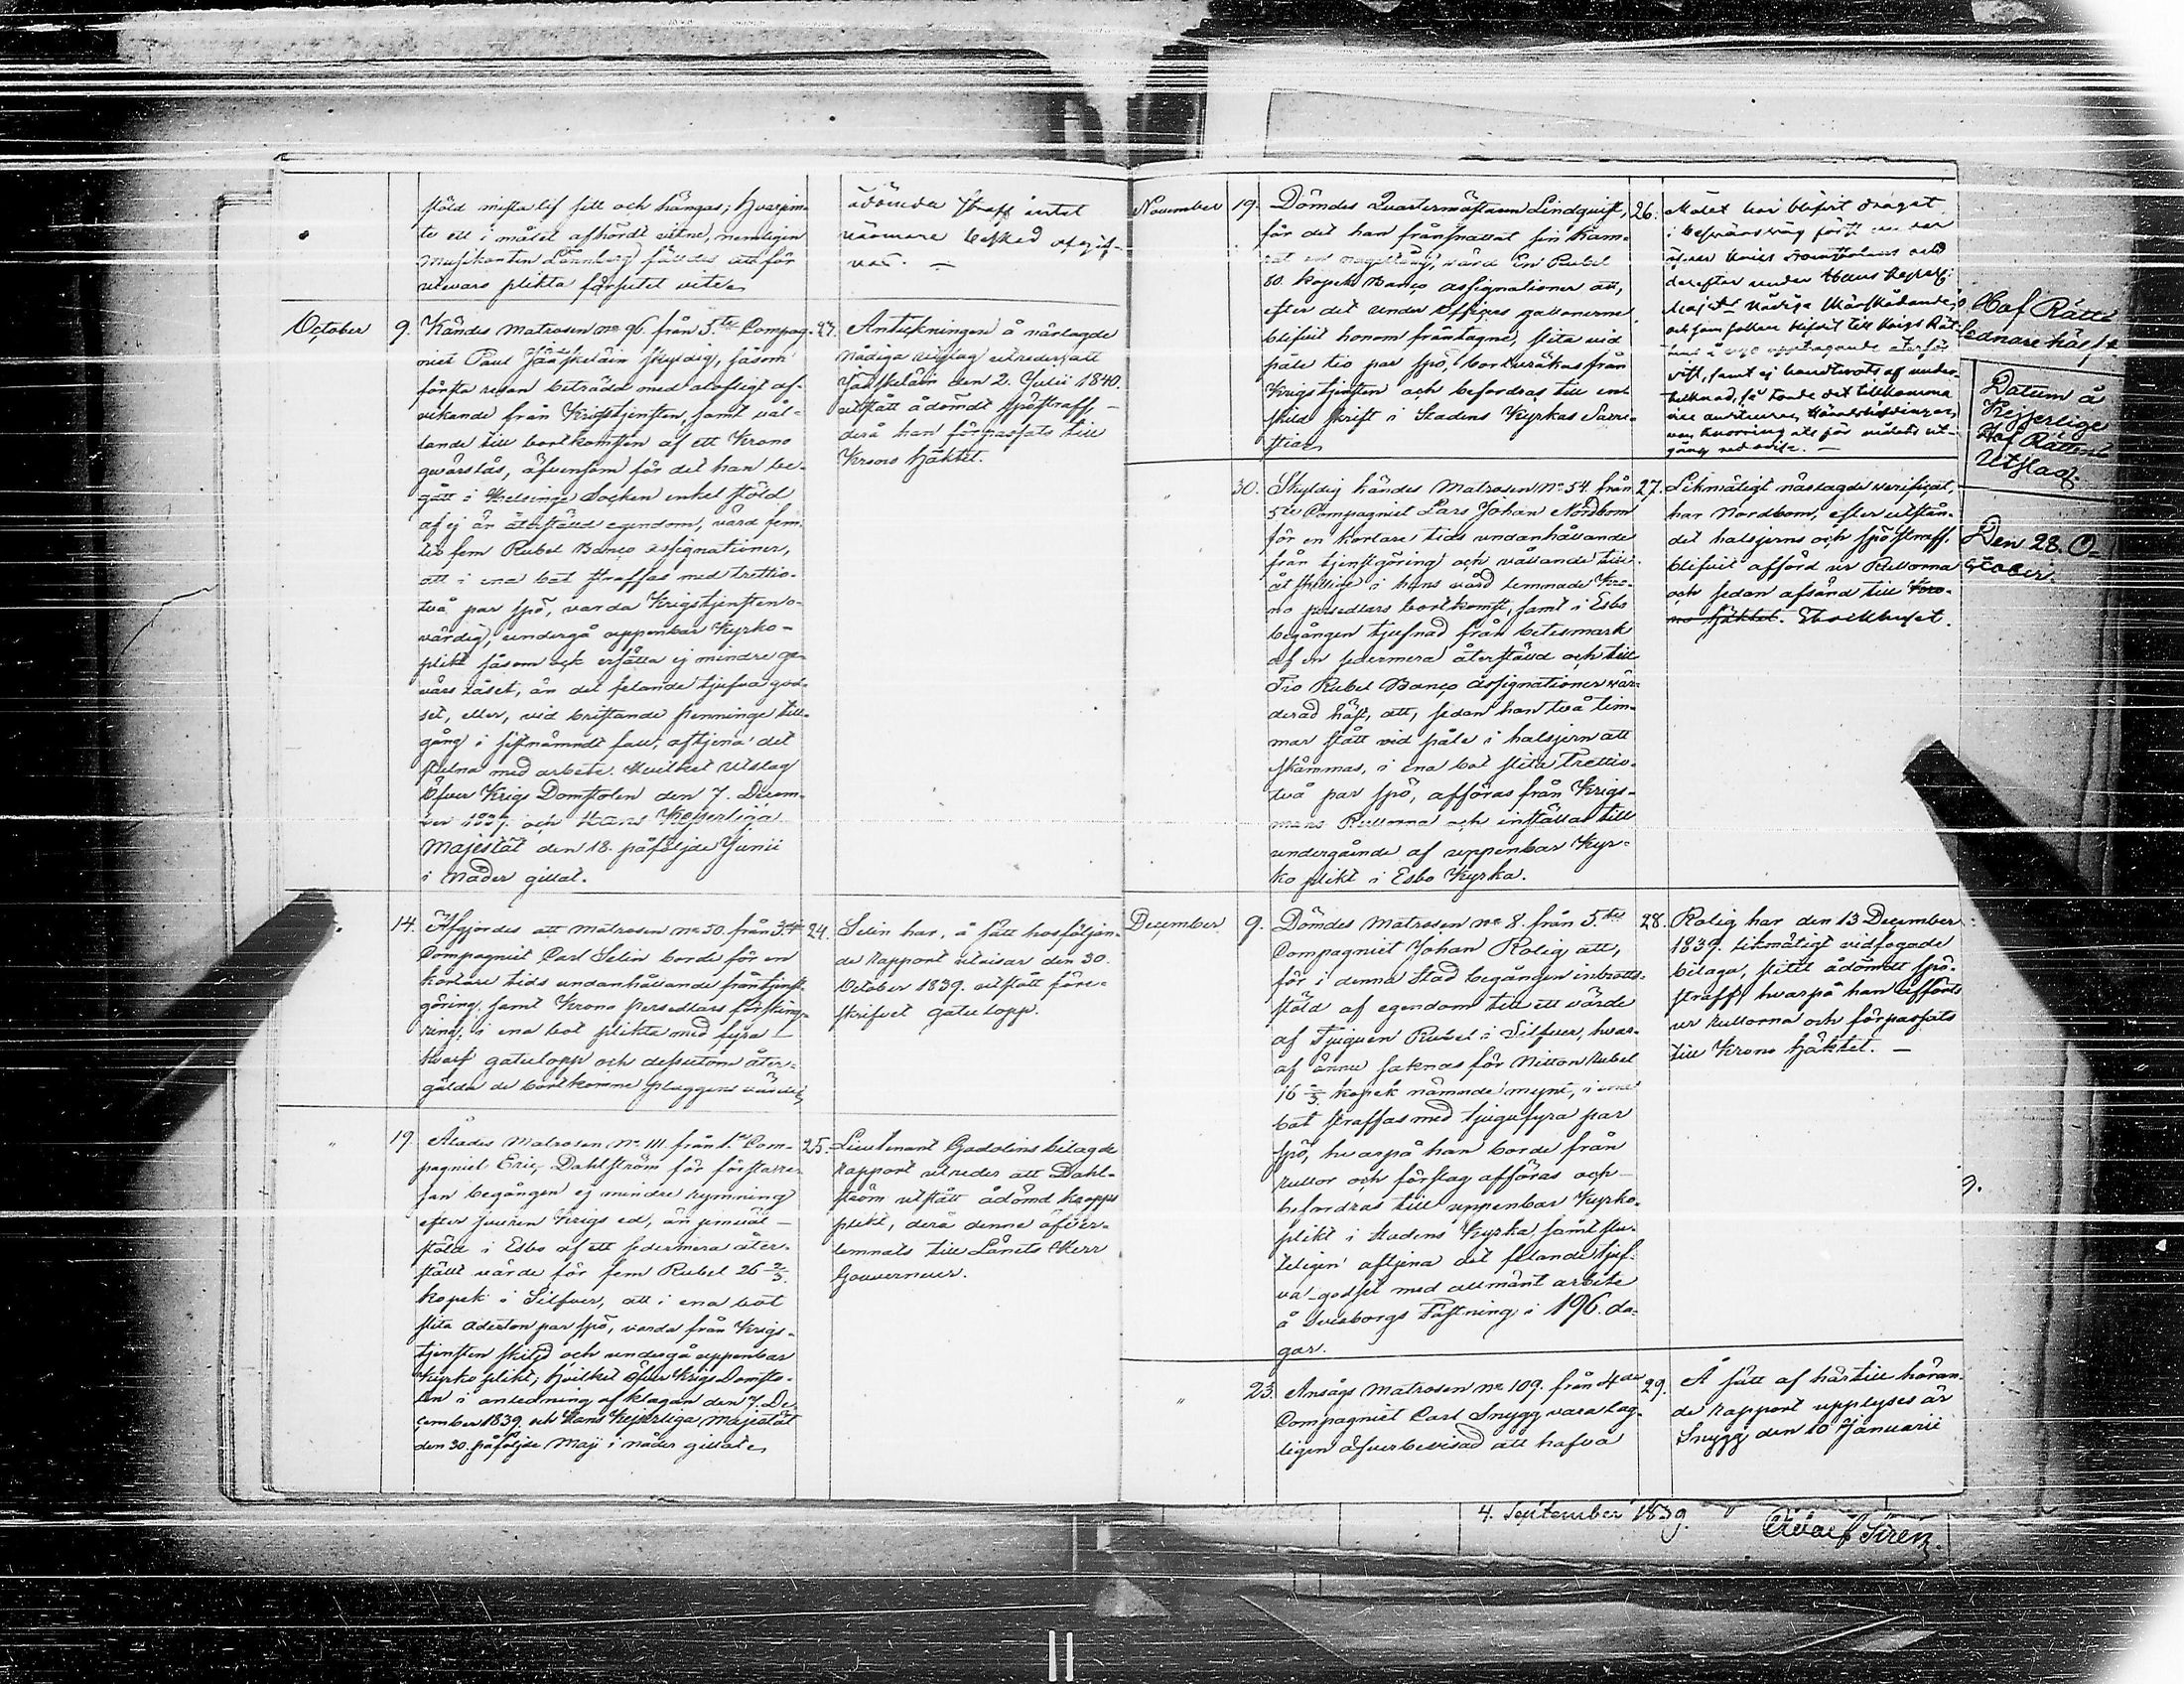 stöld mista lif sitt och hängas; hvarjem-
te ett i målet afhördt vitne, nemligen
Musikanten Lönnberg fälldes att för
utevaro plikta försutet vite.
ådömda straff intet
närmare besked upgif-
vas. —
October 9. Kändes Matrosen No 96. från 5te Compag-
niet Paul Jääskeläin skyldig, såsom
första resan beträdd med olofligt af-
vikande från Krigstjensten, samt vål-
lande till bortkomsten af ett Krono
gevärslås, äfvensom för det han be-
gått i Helsinge Socken enkel stöld
af ej än återställd egendom, värd fem-
tio fem Rubel Banco assignationer,
att i ena bot straffas med trettio-
två par spö, varda Krigstjensten o-
värdig, undergå uppenbar Kyrko-
plikt såsom ock ersätta ej mindre ge-
värs låset, än det felande tjufva god-
set, eller, vid bristande penninge till-
gång i sistnämndt fall, aftjena det
stulna med arbete. Hvilket Utslag
Öfver Krigs Domstolen den 7. Decem-
ber 1839. och Hans Kejserliga
Majestät den 18. påföljde Junii
i Nåder gillat.
23. Anteckningen å närlagde
nådiga utslag utreder, att
Jääskeläin den 2. Julii 1840.
utstått ådömdt spöstraff, —
derå han förpassats till
Krono häktet.
14. Afgjordes att Matrosen No 50. från 3die
Compagniet Carl Selin borde för en
kortare tids undanhållande från tjenst-
göring, samt Krono persedlars förskin-
ring, i ena bot plikta med fyra —
hvarf gatulopp och dessutom åter-
gälda de bortkomne plaggens värde.
24. Selin har, å sätt hosföljan-
de Rapport utvisar den 30.
October 1839. utstått före-
skrifvet gatulopp.
" 19. Ålades Matrosen No 111. från 1sta Com-
pagniet Eric Dahlström för första re-
san begången ej mindre rymning
efter svuren Krigs ed, än simuäl —
stöld i Esbo af ett sedermera åter-
ställt värde för fem Rubel 26 2/3
kopek i Silfver, att i ena bot
slita Aderton par spö, varda från Krigs-
tjensten skild och undergå uppenbar
Kyrko plikt; hvilket Öfver Krigs Domsto-
len i anledning af klagan den 7. De-
cember 1839. och Hans Kejserliga Majestät
den 30. påföljde Maji i nåder gillat.
25. Lieutenant Gadolins bilagde
Rapport utreder att Dahl-
ström utstått ådömd kropps
plikt, derå denne öfver-
lemnats till Länets Herr
Gouverneur.
November 19. Dömdes Quartermästaren Lindqvist,
för det han frånsnattat sin Kam-
rat en värd En Rubel
80. kopek Banco Assignationer att,
efter det Under Officers gallonerne
blifvit honom fråntagne, slita vid
påle tio par spö, bortvräkas från
Krigstjensten och befordras till en-
skild skrift i Stadens Kyrkas Sacri-
stia.
26. Målet har blifvit draget
i besvärsväg först under
Öfver Krigs Domstolens och
derefter under Hans Kejserl:
Majts Nådiga
och som saken blifvit till Krigs Rät-
ten å nyo upptagande återför-
vist, samt ej handterats af under-
tecknad, så torde det tillkomma
gång redovisa. —
" 30. Skyldig kändes Matrosen No 54. från
5te Compagniet Lars Johan Nordbom
för en kortare tids undanhållande
från tjenstgöring och vållande till
åt skillige i hans vård lemnade Kro-
no persedlars bortkomst, samt i Esbo
begången tjufnad från betesmark
af en sedermera återställd och till
Tio Rubel Banco Assignationer vär-
derad häst, att, sedan han två tim-
mar stått vid påle i halsjern att
skämmas, i ena bot slita Trettio-
två par spö, afföras från Krigs-
mans Rullorna och inställas till
undergående af uppenbar Kyr-
ko plikt i Esbo Kyrka.
27. Likmätigt närlagde verificat,
har Nordbom, efter utstån-
det halsjerns och spöstraff,
blifvit afförd ur Rullorna
och sedan afsänd till Kro-
no häktet. Stockhuset.
December 9. Dömdes Matrosen No 8. från 5te
Compagniet Johan Rolig att,
för i denna Stad begången inbrotts-
stöld af egendom till ett värde
af Tjuguen Rubel i Silfver, hvar-
af ännu saknas för Nitton Rubel
16 2/3 kopek nämnde mynt, i ena
bot straffas med tjugufyra par
spö, hvarpå han borde från
rullor och förslag afföras och —
befordras till uppenbar Kyrko-
plikt i Stadens Kyrka, samt slu-
teligen aftjena det felande tjuf-
va-godset med allmänt arbete
å Sveaborgs Fästning i 196. da-
gar.
28. Rolig har den 13 December
1839. likmätigt vidfogade
bilaga, slitit ådömdt spö-
straff, hvarpå han afförts
ur rullorna och förpassats
till Krono häktet. —
" 23. Ansågs Matrosen No 109. från 4de
Compagniet Carl Snygg vara lag-
ligen öfverbevisad att hafva
29. Å sätt af här till höran-
de Rapport upplyses är
Snygg den 10 Januarii
Hof Rätts
Datum å
Kejserlige
Hof Rättens
Utslag.
Den 28. O-
ctober.
9.
4. September 1839. "
Adolf Siren.